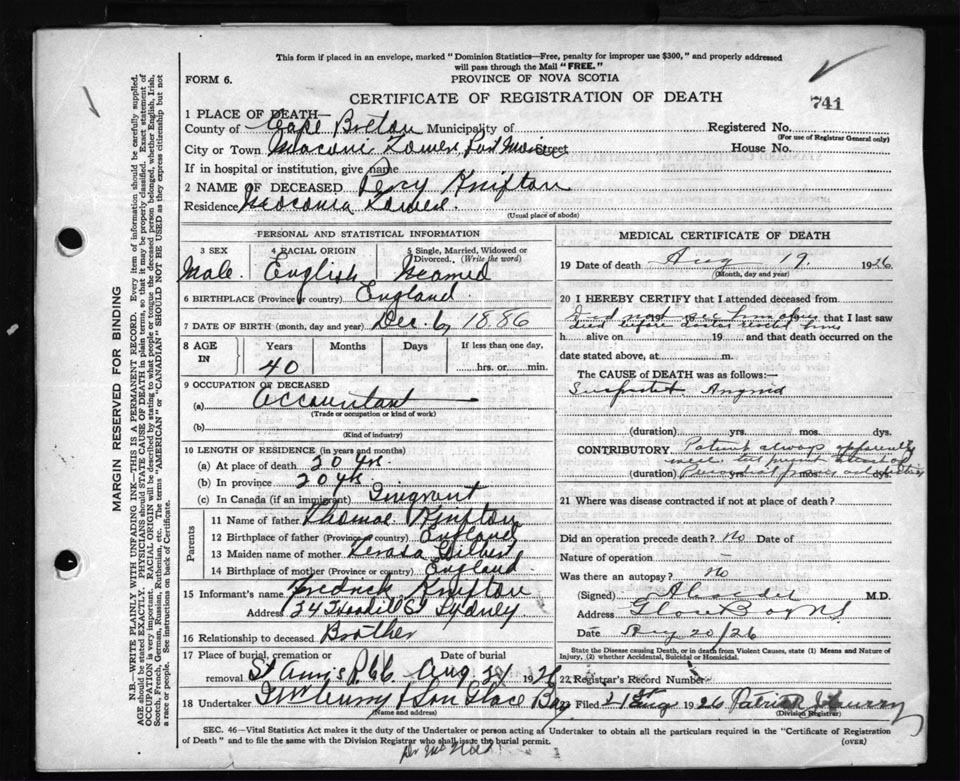 This form if placed in an envelope, marked "Dominion Statistics—Free, penalty for improper use $300," and properly addressed
will pass through the Mail "FREE."
FORM 6.
PROVINCE OF NOVA SCOTIA
CERTIFICATE OF REGISTRATION OF DEATH
741
1 PLACE OF DEATH—
County of Cape Breton Municipality of
Registered No.
(For use of Registrar General only)
City or Town Tower, Port Street
House No.
If in hospital or institution, give name
2 NAME OF DECEASED Percy Knifton
Residence
(Usual place of abode)
PERSONAL AND STATISTICAL INFORMATION
3 SEX
4 RACIAL ORIGIN
5 Single, Married, Widowed or Divorced. (Write the word)
Male. English
6 BIRTHPLACE (Province or country) England
7 DATE OF BIRTH (month, day and year) Dec. 6, 1886
8 AGE IN
Years Months Days If less than one day,
40
hrs. or min.
9 OCCUPATION OF DECEASED
(a) Accountant
(Trade or occupation or kind of work)
(b)
(Kind of industry)
10 LENGTH OF RESIDENCE (in years and months)
(a) At place of death 20 yrs
(b) In province 20 yrs
(c) In Canada (if an immigrant)
Parents
11 Name of father Thomas Knifton
12 Birthplace of father (Province or country) England
13 Maiden name of mother Gilbert
14 Birthplace of mother (Province or country) England
15 Informant's name Fredrick Knifton
Address 34 St Sydney
16 Relationship to deceased Brother
17 Place of burial, cremation or removal
Date of burial
St Anns Aug 21 1926
18 Undertaker & Son Glace Bay
(Name and address)
MEDICAL CERTIFICATE OF DEATH
19 Date of death Aug 19. 1926
(Month, day and year)
20 I HEREBY CERTIFY that I attended deceased from
Did not see him alive that I last saw
died before Doctor him
h alive on 19 and that death occurred on the
date stated above, at m.
The CAUSE of DEATH was as follows:—
Suspected Angina
(duration) yrs. mos. dys.
CONTRIBUTORY Patient always apparently
(duration) yrs. mos. dys.
21 Where was disease contracted if not at place of death?
Did an operation precede death? No Date of
Nature of operation
Was there an autopsy? No
(Signed) M.D.
Address Glace Bay NS
Date Aug 20/26
State the Disease causing Death, or in Death from Violent Causes, state (1) Means and Nature of
Injury, (2) whether Accidental, Suicidal or Homicidal.
22 Registrar's Record Number
Filed 21st Aug 1926 Patrick
(Division Registrar)
SEC. 46—Vital Statistics Act makes it the duty of the Undertaker or person acting as Undertaker to obtain all the particulars required in the "Certificate of Registration
of Death" and to file the same with the Division Registrar who shall issue the burial permit.
(OVER)
MARGIN RESERVED FOR BINDING
N.B.—WRITE PLAINLY WITH UNFADING INK—THIS IS A PERMANENT RECORD. Every item of information should be carefully supplied.
AGE should be stated EXACTLY. PHYSICIANS should STATE CAUSE OF DEATH in plain terms, so that it may be properly classified. Exact statement of
OCCUPATION is very important. RACIAL ORIGIN will be described by stating to what people or tongue the deceased person belonged, whether English, Irish,
Scotch, French, German, Russian, Ruthenian, etc. The terms "AMERICAN" or "CANADIAN" SHOULD NOT BE USED as they express citizenship but not
a race or people. See instructions on back of Certificate.